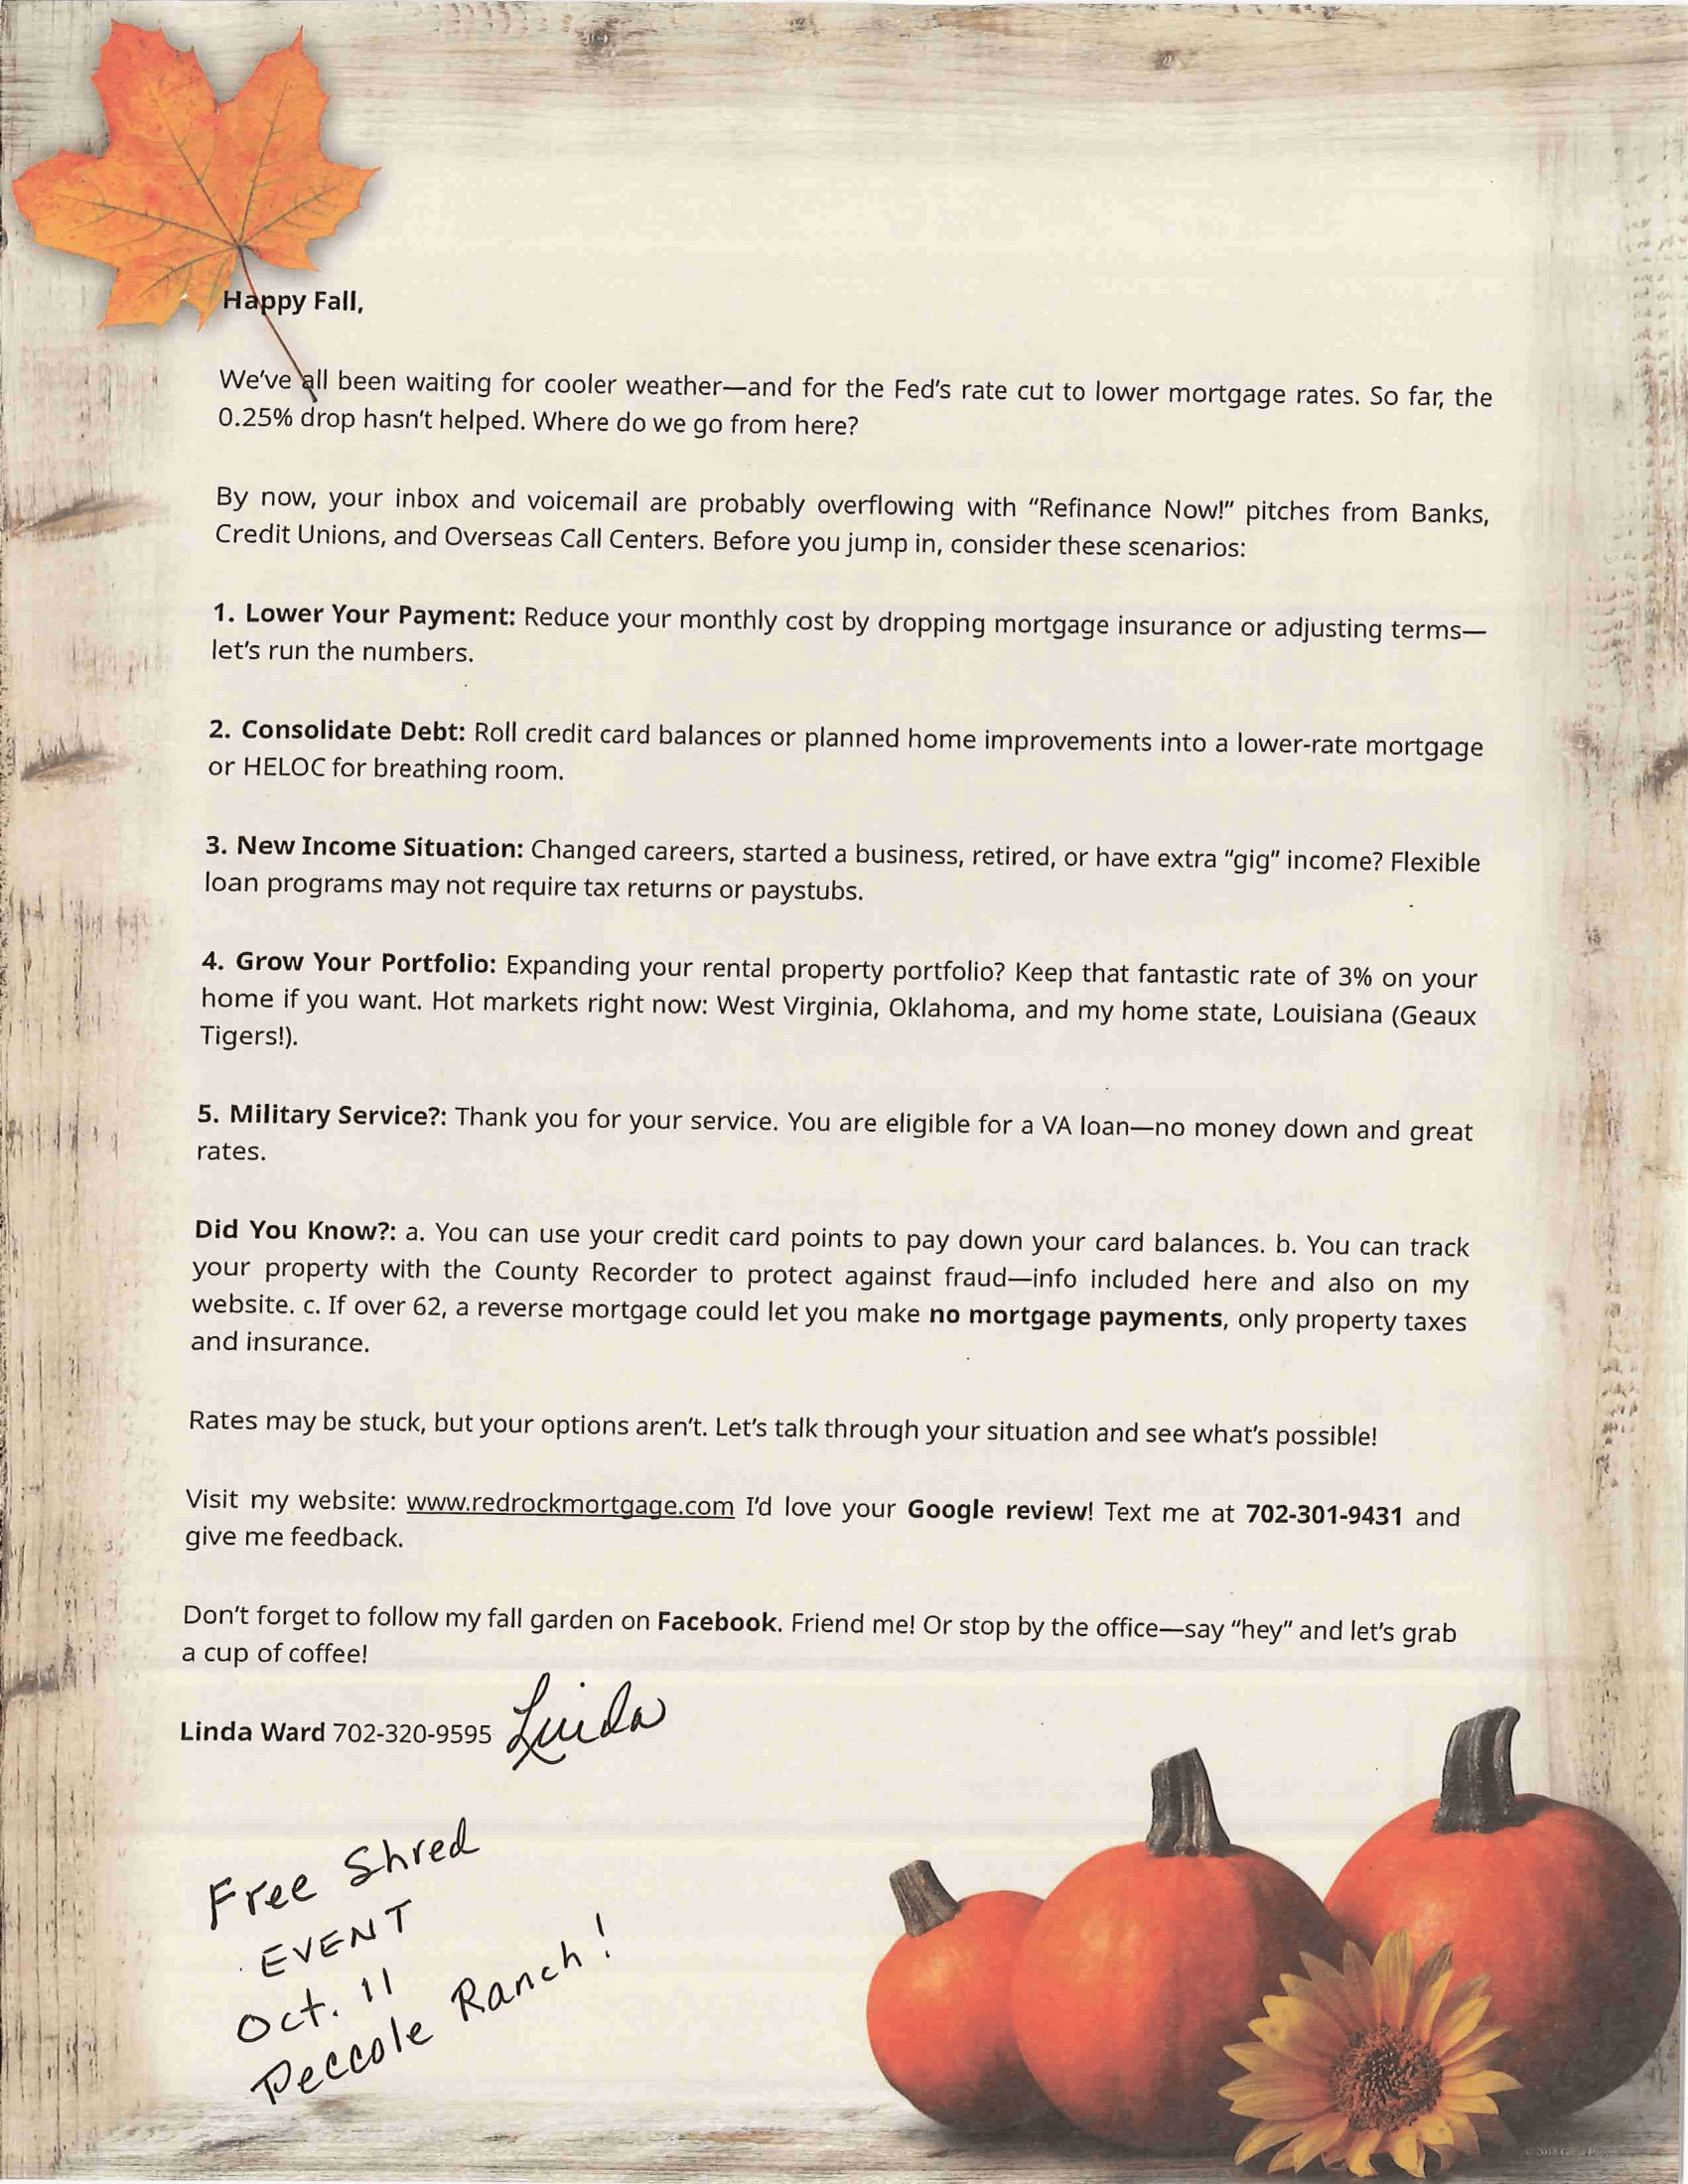 Happy Fall,
We've all been waiting for cooler weather—and for the Fed's rate cut to lower mortgage rates. So far, the
0.25% drop hasn't helped. Where do we go from here?
By now, your inbox and voicemail are probably overflowing with “Refinance Now!” pitches from Banks,
Credit Unions, and Overseas Call Centers. Before you jump in, consider these scenarios:
1. Lower Your Payment: Reduce your monthly cost by dropping mortgage insurance or adjusting terms—
let's run the numbers.
2. Consolidate Debt: Roll credit card balances or planned home improvements into a lower-rate mortgage
or HELOC for breathing room.
3. New Income Situation: Changed careers, started a business, retired, or have extra “gig” income? Flexible
loan programs may not require tax returns or paystubs.
4. Grow Your Portfolio: Expanding your rental property portfolio? Keep that fantastic rate of 3% on your
home if you want. Hot markets right now: West Virginia, Oklahoma, and my home state, Louisiana (Geaux
Tigers!).
5. Military Service?: Thank you for your service. You are eligible for a VA loan—no money down and great
rates.
Did You Know?: a. You can use your credit card points to pay down your card balances. b. You can track
your property with the County Recorder to protect against fraud—info included here and also on my
website. c. If over 62, a reverse mortgage could let you make no mortgage payments, only property taxes
and insurance.
Rates may be stuck, but your options aren't. Let's talk through your situation and see what's possible!
Visit my website: www.redrockmortgage.com I'd love your Google review! Text me at 702-301-9431 and
give me feedback.
Don't forget to follow my fall garden on Facebook. Friend me! Or stop by the office—say “hey” and let's grab
a cup of coffee!
Linda Ward 702-320-9595 Linda
Free Shred
EVENT
Oct. 11
Peccole Ranch!